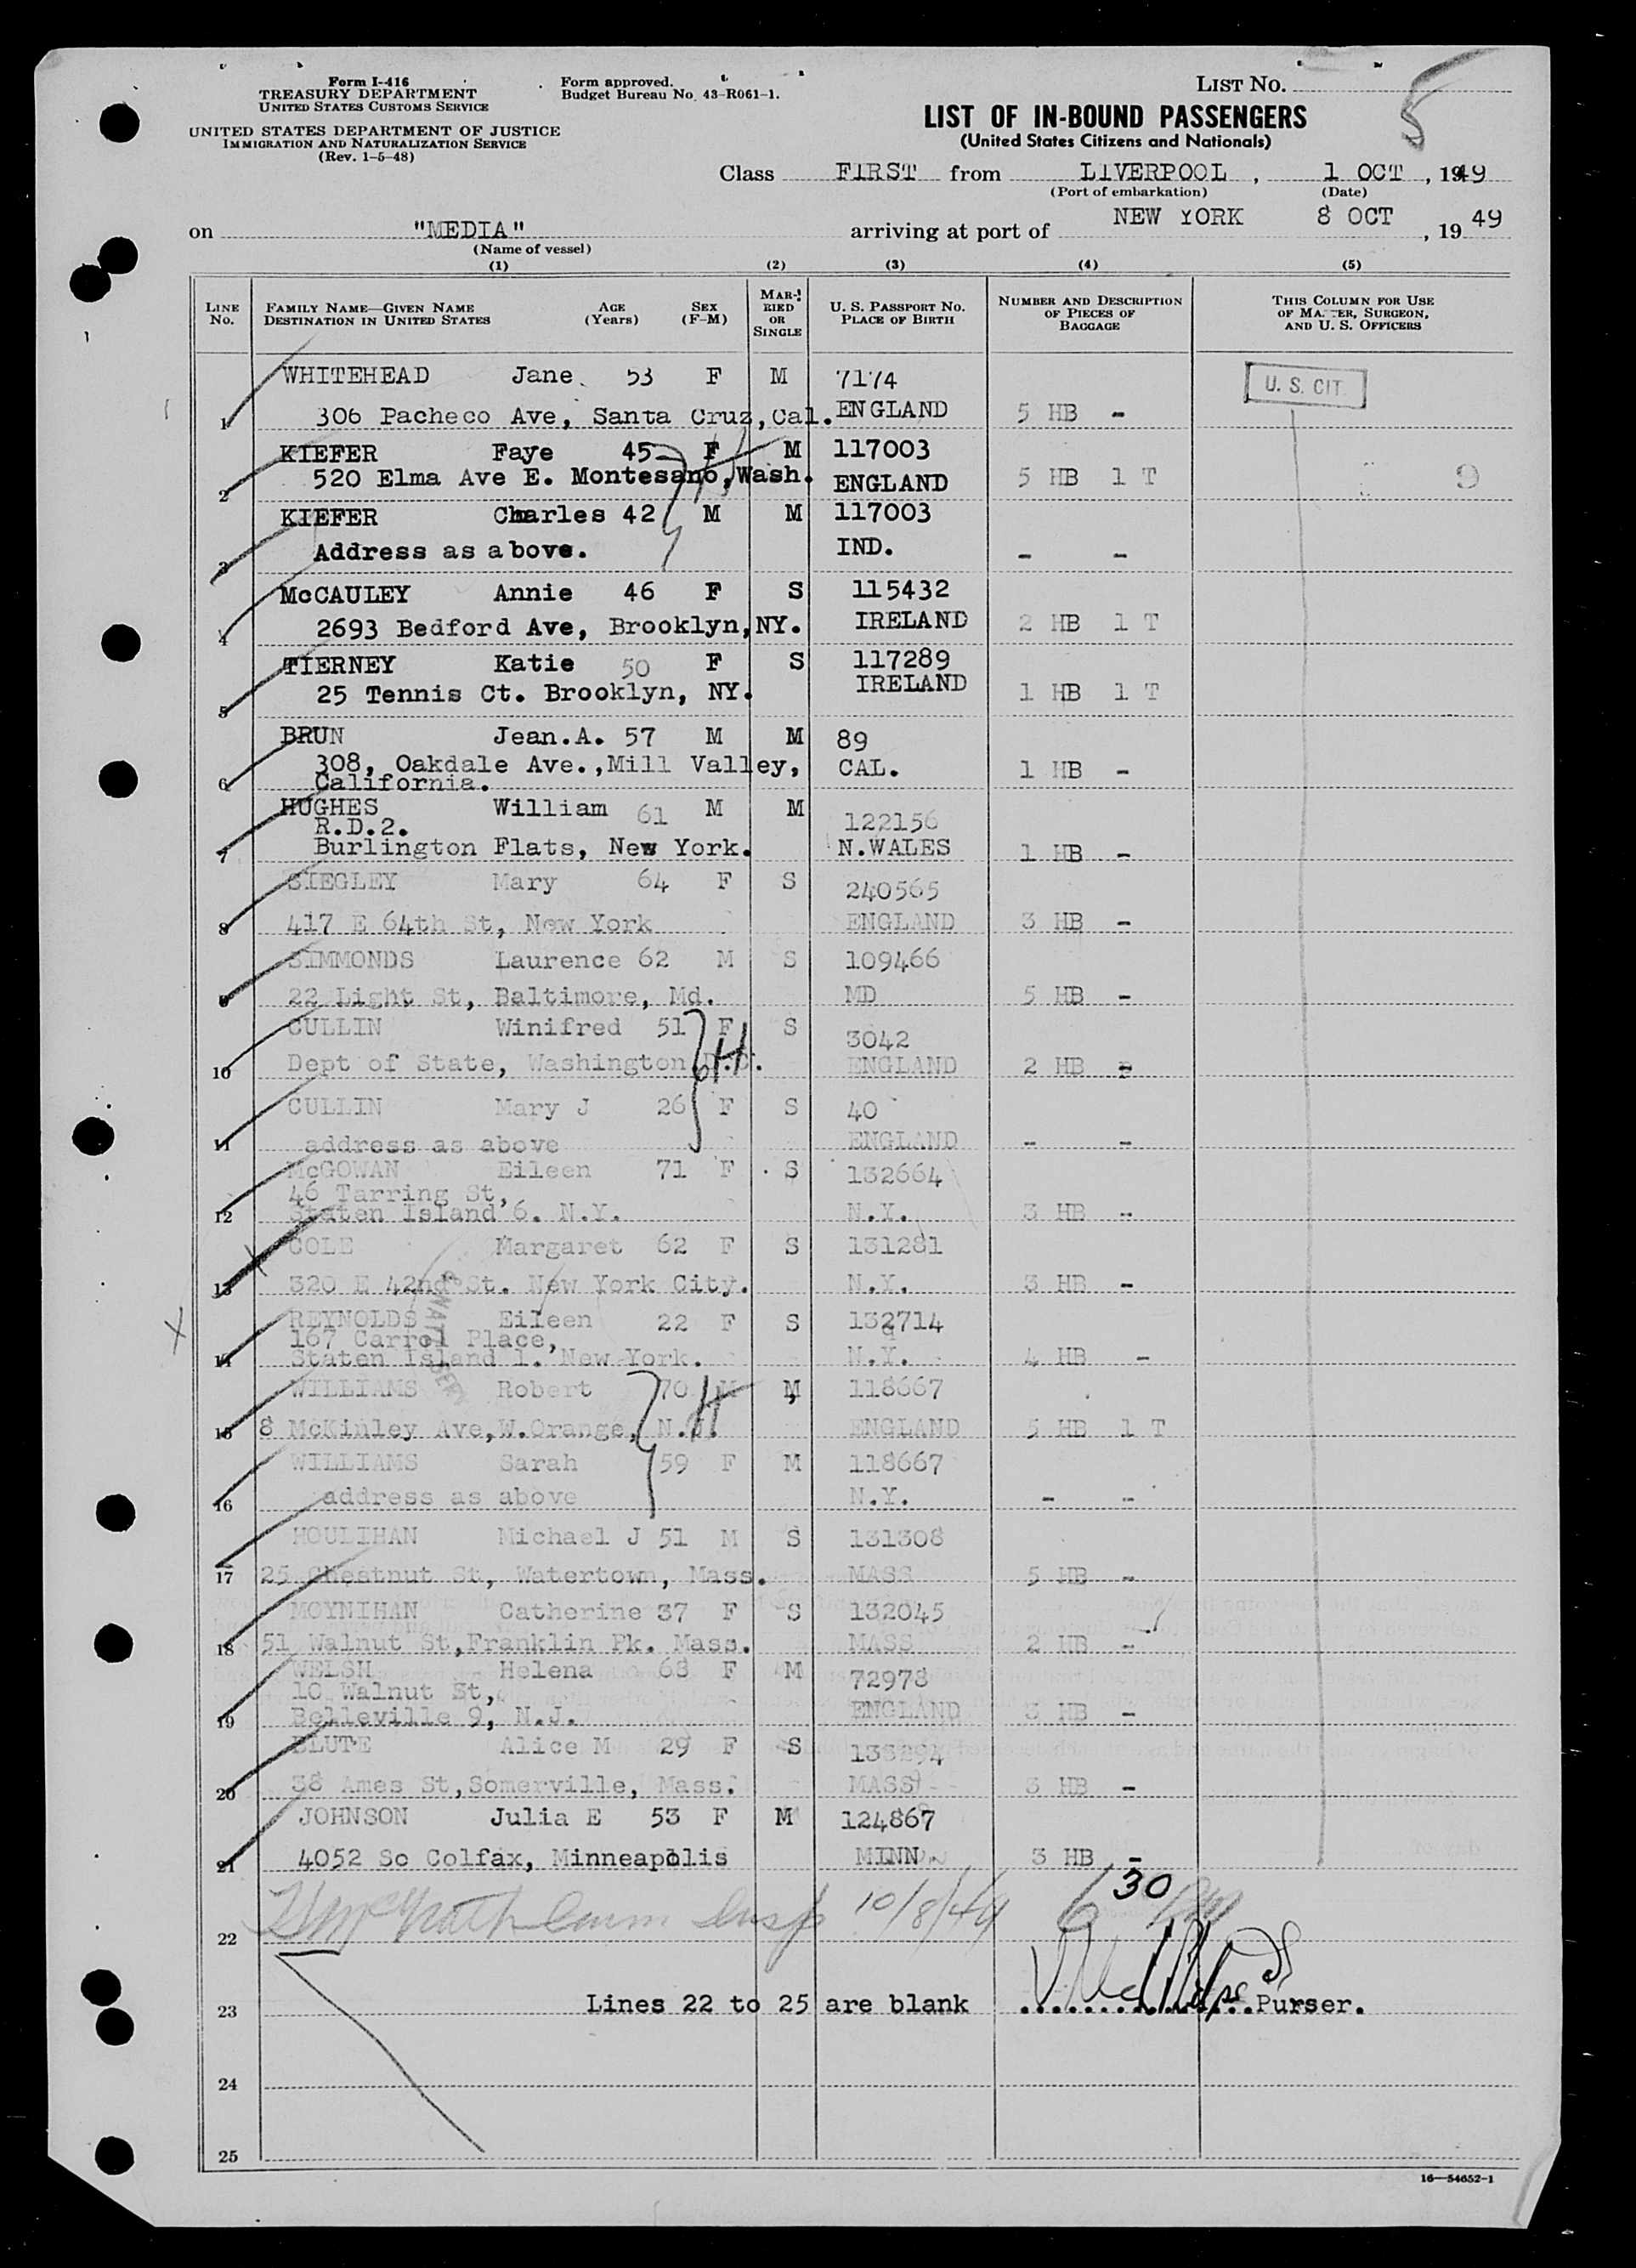 Form I-416
TREASURY DEPARTMENT
UNITED STATES CUSTOMS SERVICE
UNITED STATES DEPARTMENT OF JUSTICE
IMMIGRATION AND NATURALIZATION SERVICE
(Rev. 1-5-48)
Form approved.
Budget Bureau No. 43-R061-1.
LIST NO. 5
LIST OF IN-BOUND PASSENGERS
(United States Citizens and Nationals)
Class FIRST from LIVERPOOL, 1 OCT, 1949
(Port of embarkation) (Date)
on "MEDIA" arriving at port of NEW YORK 8 OCT, 19 49
(Name of vessel)
(1) (2) (3) (4) (5)
LINE No. FAMILY NAME—GIVEN NAME DESTINATION IN UNITED STATES AGE (Years) SEX (F-M) MARRIED OR SINGLE U. S. PASSPORT NO. PLACE OF BIRTH NUMBER AND DESCRIPTION OF PIECES OF BAGGAGE THIS COLUMN FOR USE OF MASTER, SURGEON, AND U. S. OFFICERS
WHITEHEAD Jane. 53 F M 7174 U. S. CIT.
1 306 Pacheco Ave, Santa Cruz, Cal. ENGLAND 5 HB -
KIEFER Faye 45 F M 117003
2 520 Elma Ave E. Montesano, Wash. ENGLAND 5 HB 1 T 9
KIEFER Charles 42 M M 117003
3 Address as above. IND. - -
McCAULEY Annie 46 F S 115432
4 2693 Bedford Ave, Brooklyn, NY. IRELAND 2 HB 1 T
TIERNEY Katie 50 F S 117289
5 25 Tennis Ct. Brooklyn, NY. IRELAND 1 HB 1 T
BRUN Jean.A. 57 M M 89
308, Oakdale Ave.,Mill Valley, CAL. 1 HB -
6 California.
HUGHES William 61 M M 122156
R.D.2.
7 Burlington Flats, New York. N.WALES 1 HB -
SIEGLEY Mary 64 F S 240565
8 417 E 64th St, New York ENGLAND 3 HB -
SIMMONDS Laurence 62 M S 109466
9 22 Light St, Baltimore, Md. MD 5 HB -
CULLIN Winifred 51 F S 3042
10 Dept of State, Washington D.C. ENGLAND 2 HB -
CULLIN Mary J 26 F S 40
11 address as above ENGLAND - -
McGOWAN Eileen 71 F S 132664
46 Tarring St,
12 Staten Island 6. N.Y. N.Y. 3 HB -
COLE Margaret 62 F S 131281
13 320 E 42nd St. New York City. N.Y. 3 HB -
REYNOLDS Eileen 22 F S 132714
167 Carrol Place,
14 Staten Island 1. New York. N.Y. 4 HB -
WILLIAMS Robert 70 M M 118667
15 8 McKinley Ave,W.Orange, N.J. ENGLAND 5 HB 1 T
WILLIAMS Sarah 59 F M 118667
16 address as above N.Y. - -
HOULIHAN Michael J 51 M S 131308
17 25 Chestnut St, Watertown, Mass. MASS 5 HB -
MOYNIHAN Catherine 37 F S 132045
18 51 Walnut St,Franklin Pk. Mass. MASS 2 HB -
WELSH Helena 68 F M 72978
10 Walnut St,
19 Belleville 9, N.J. ENGLAND 3 HB -
BLUTE Alice M 29 F S 133294
20 38 Ames St,Somerville, Mass. MASS 3 HB -
JOHNSON Julia E 53 F M 124867
21 4052 So Colfax, Minneapolis MINN 3 HB -
22 Insp 10/8/49 6 30 PM
23 Lines 22 to 25 are blank Purser.
24
25
16—54652-1